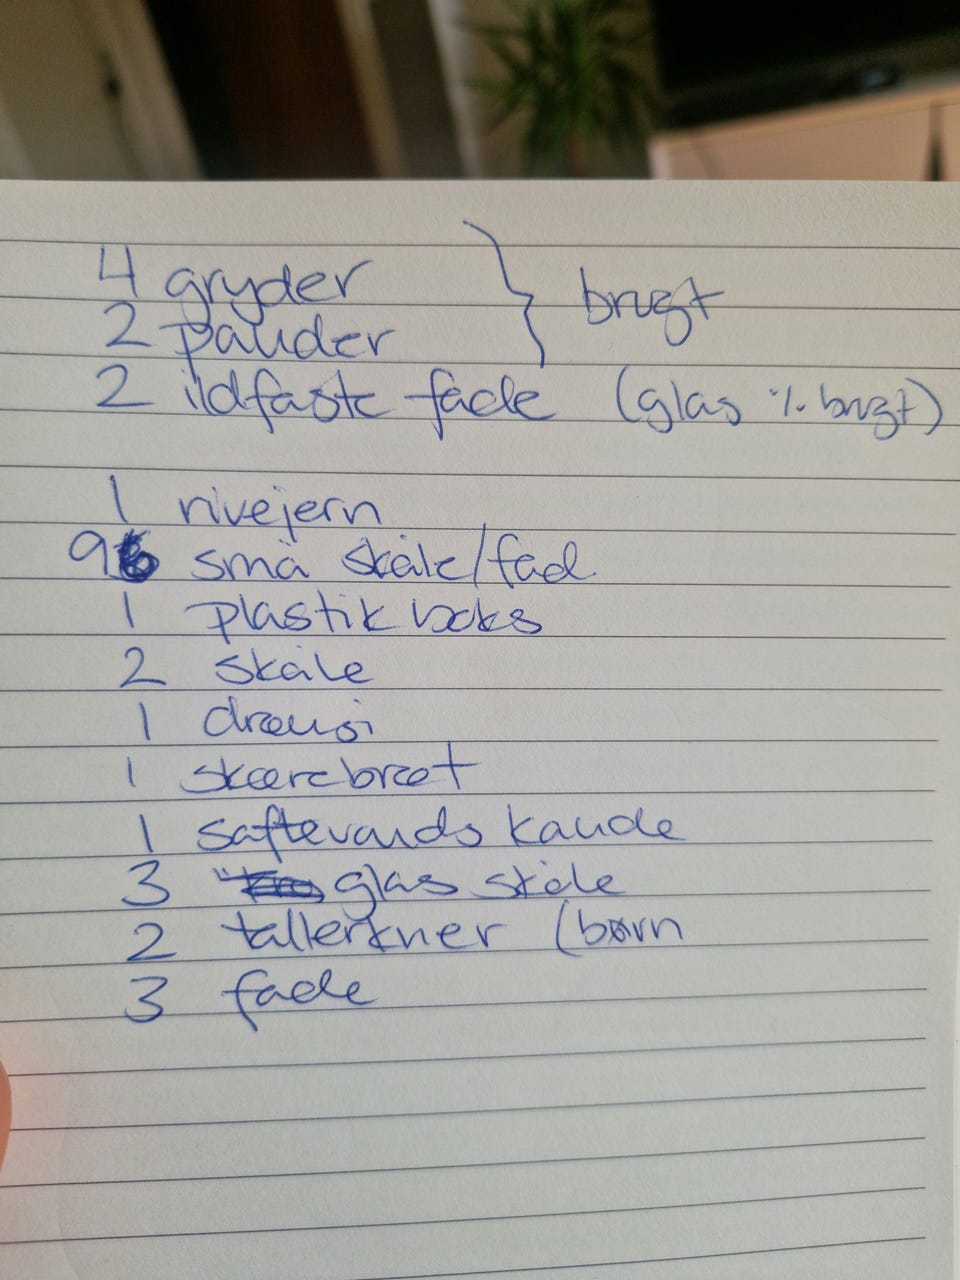 4 gryder } brugt
2 pander
2 ildfaste fade (glas ÷ brugt)
1 rivejern
9 små skåle/fad
1 plastik boks
2 skåle
1
1 skærebræt
1 saftevands kande
3 glas skåle
2 tallerkner (børn
3 fade